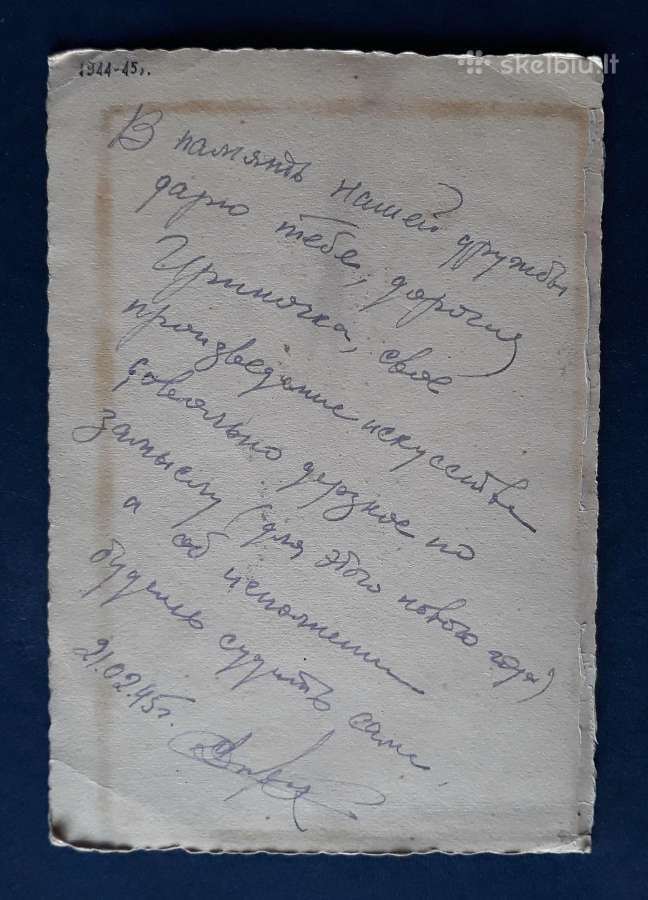 1944-45г.
skelbiu.lt
В память нашей дружбы
дарю тебе, дорогая
Ириночка, свое
произведение искусства
довольно дерзкое по
замыслу (для этого нового года)
а об исполнении
будешь судить сама.
21.02.45г.